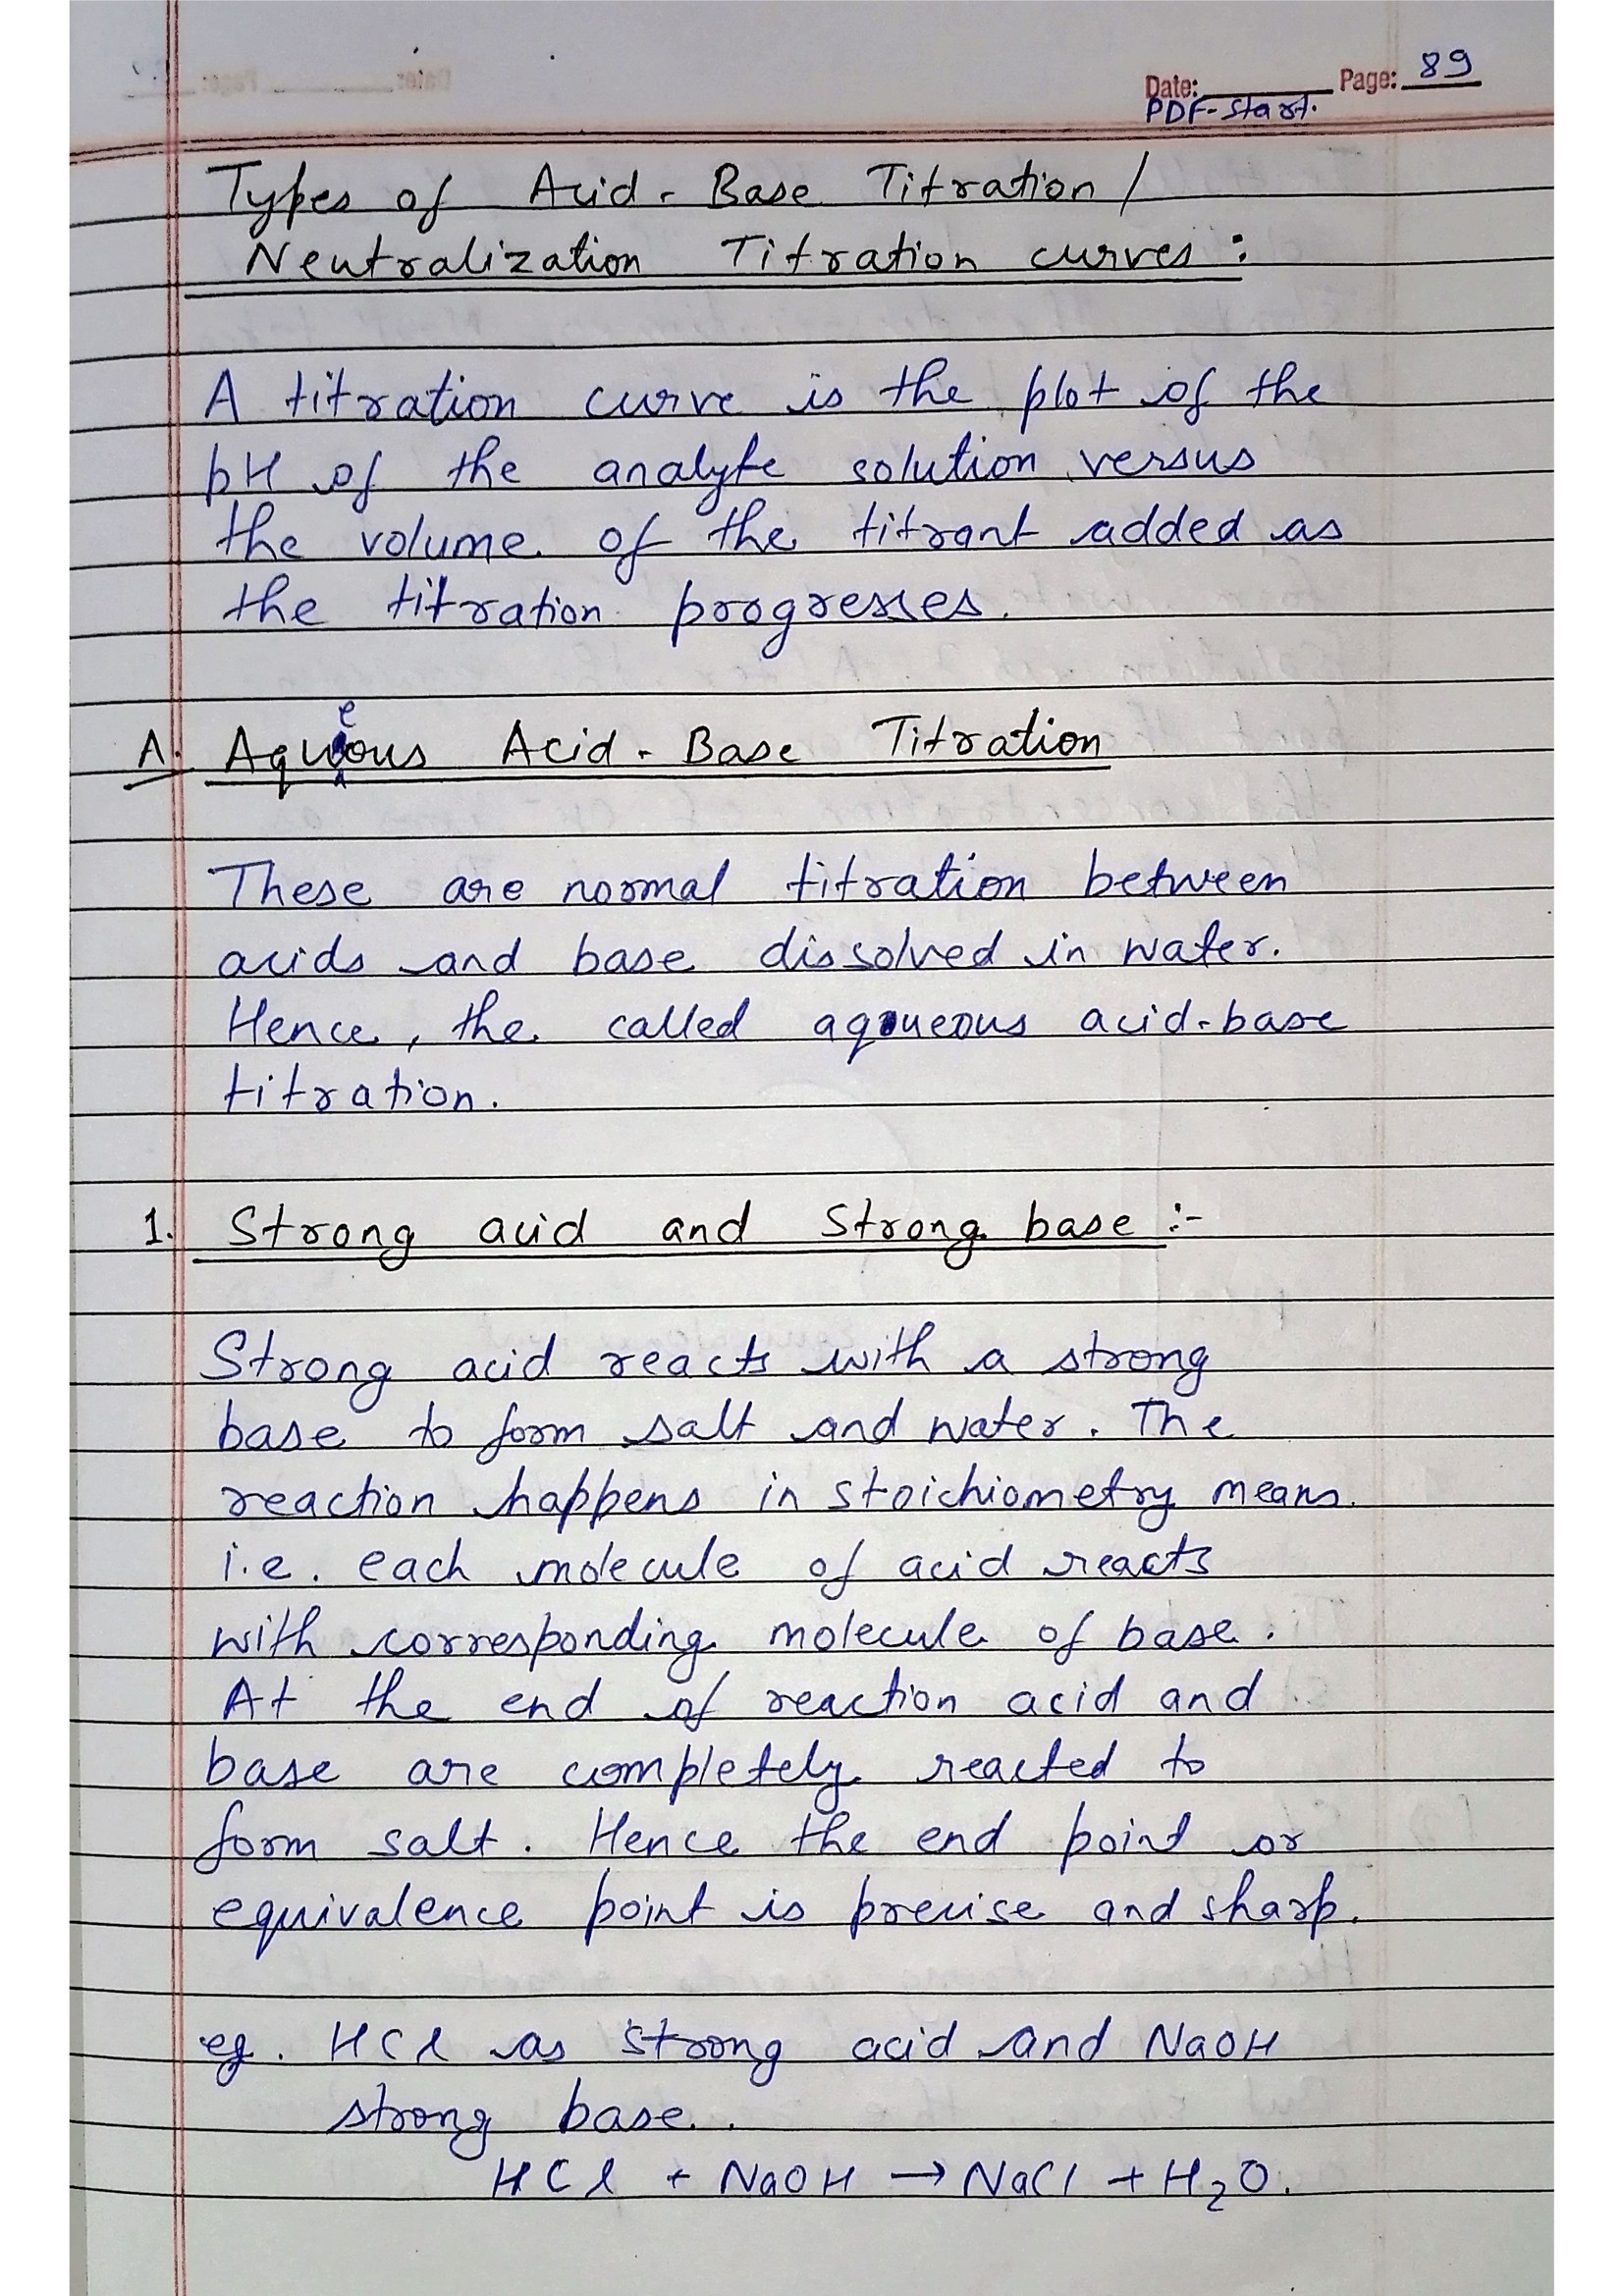 Date: Page: 89
PDF-Start.
Types of Acid - Base Titration /
Neutralization Titration curves :
A titration curve is the plot of the
pH of the analyte solution versus
the volume of the titrant added as
the titration progresses.
A. Aqueous Acid - Base Titration
These are normal titration between
acids and base dissolved in water.
Hence, the called aqueous acid-base
titration.
1. Strong acid and Strong base :-
Strong acid reacts with a strong
base to form salt and water. The
reaction happens in stoichiometry means
i.e. each molecule of acid reacts
with corresponding molecule of base.
At the end of reaction acid and
base are completely reacted to
form salt. Hence the end point or
equivalence point is precise and sharp.
eg. HCl as strong acid and NaOH
strong base.
HCl + NaOH → NaCl + H₂O.